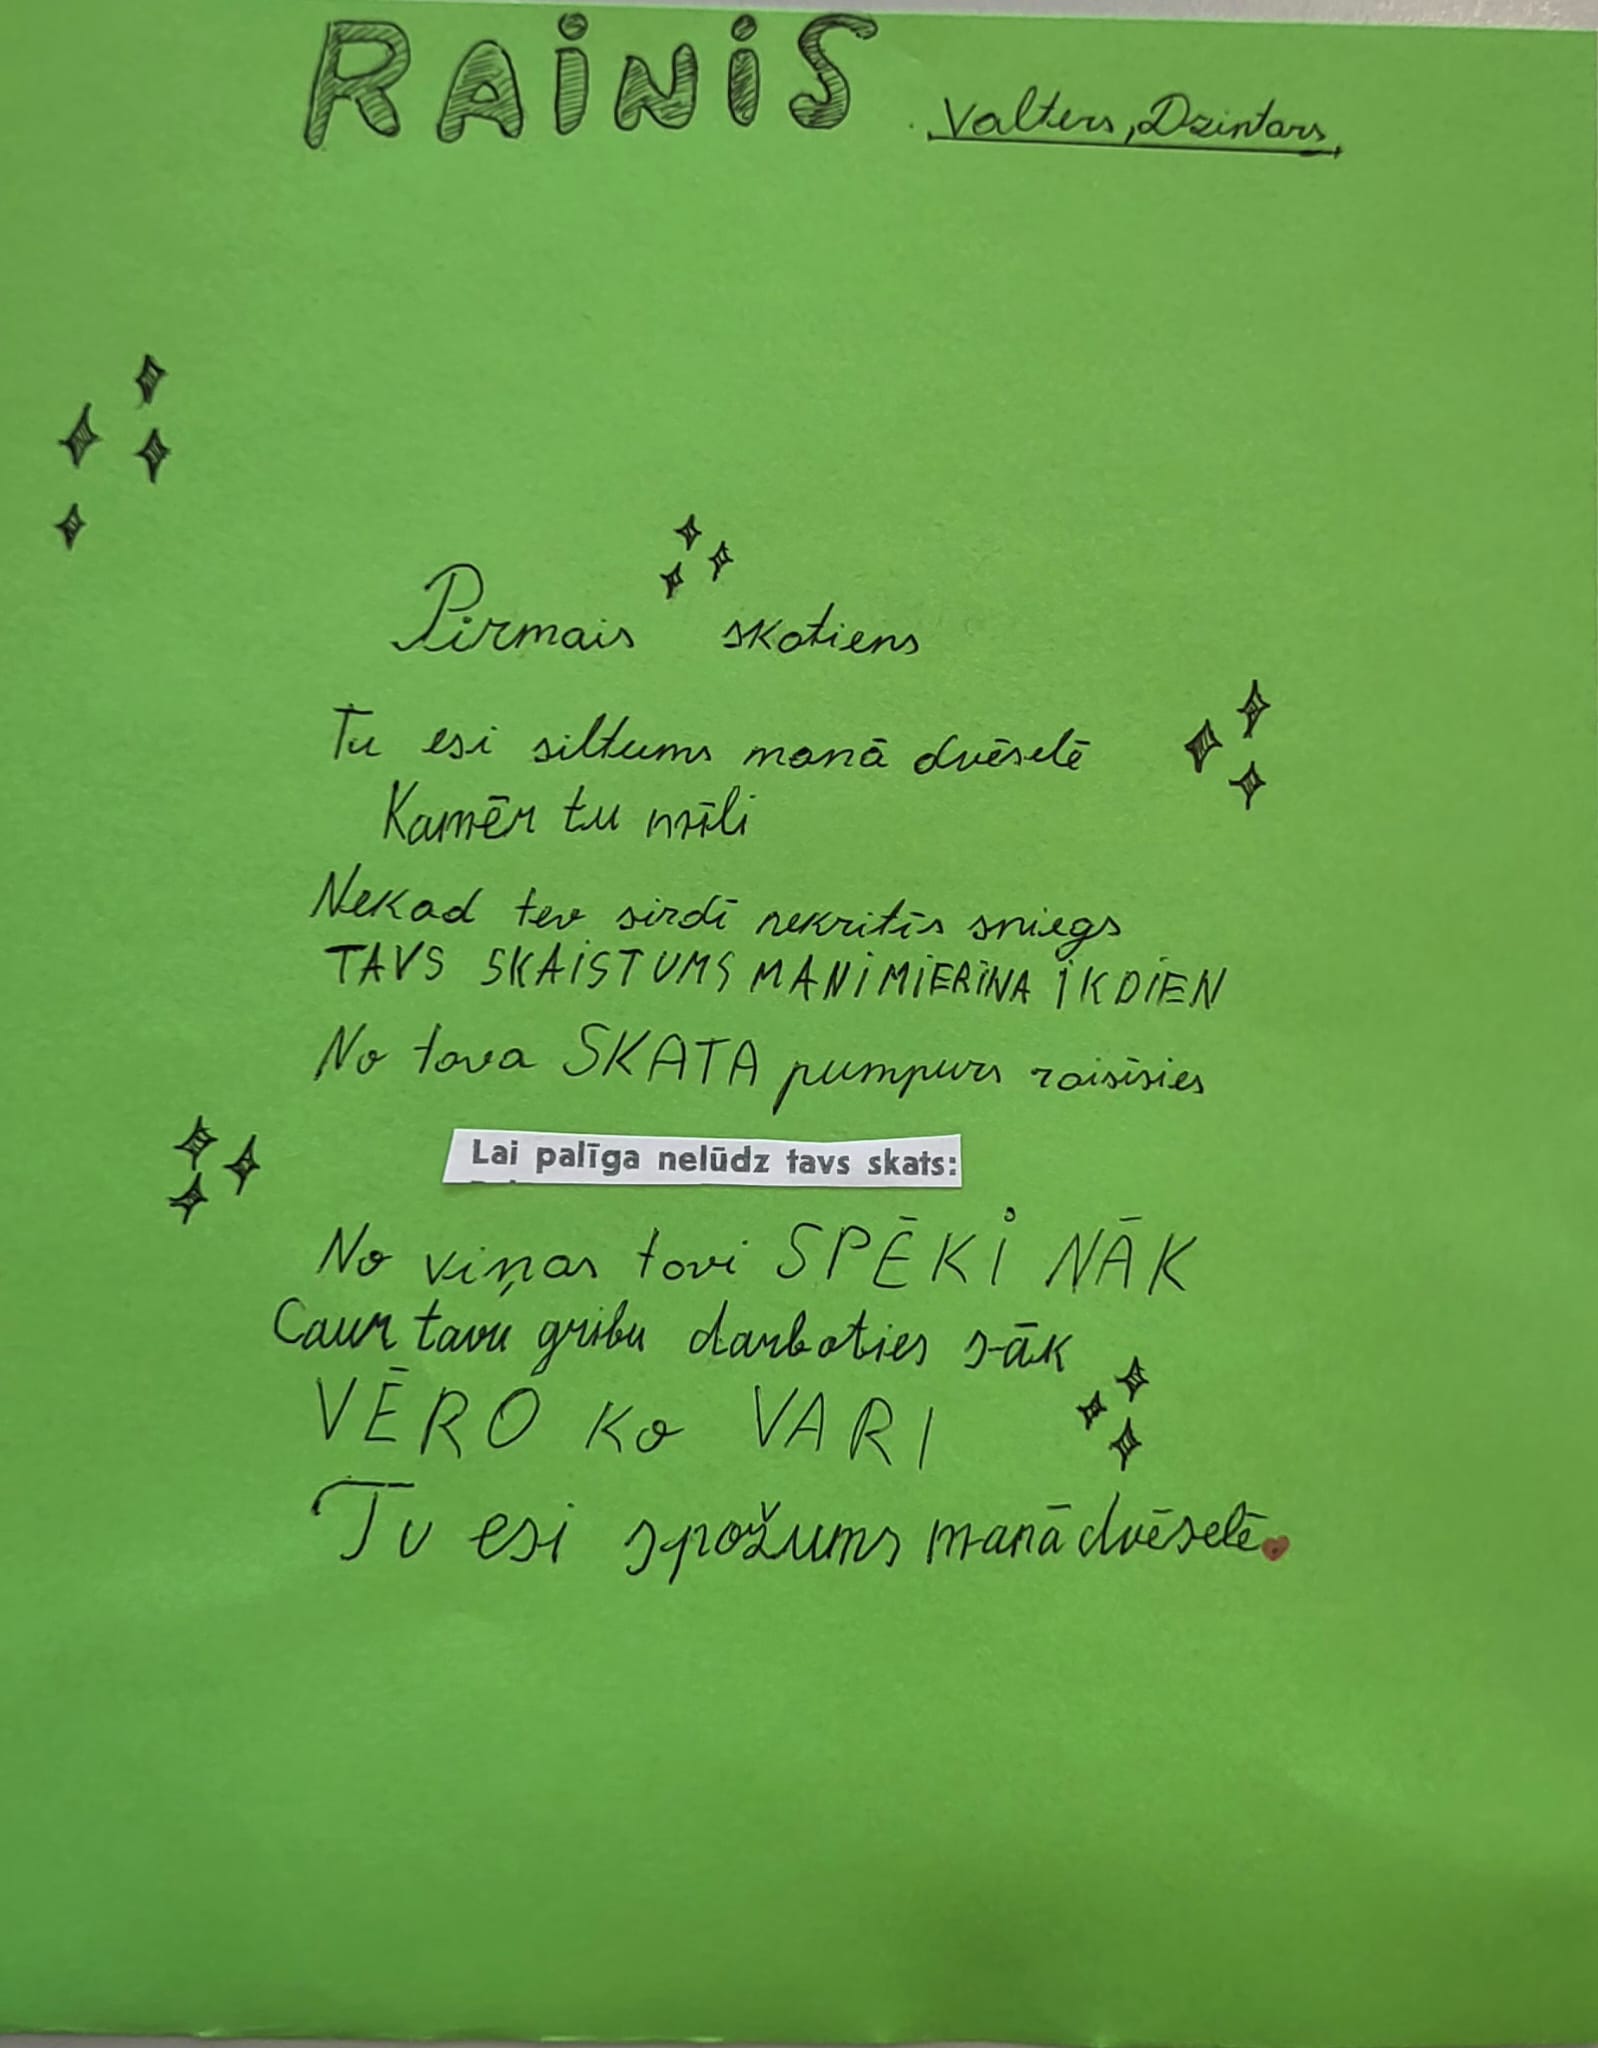 RAINIS
Valters, Dzintars
Pirmais skatiens
Tu esi siltums manā dvēselē
Kamēr tu mīli
Nekad tev sirdī nekritīs sniegs
TAVS SKAISTUMS MANI MIERINA IKDIEN
No tava SKATA pumpurs raisīsies
Lai palīga nelūdz tavs skats:
No viņas tavi SPĒKI NĀK
Caur tavu gribu darboties sāk
VĒRO ko VARI
Tu esi spožums manā dvēselē.